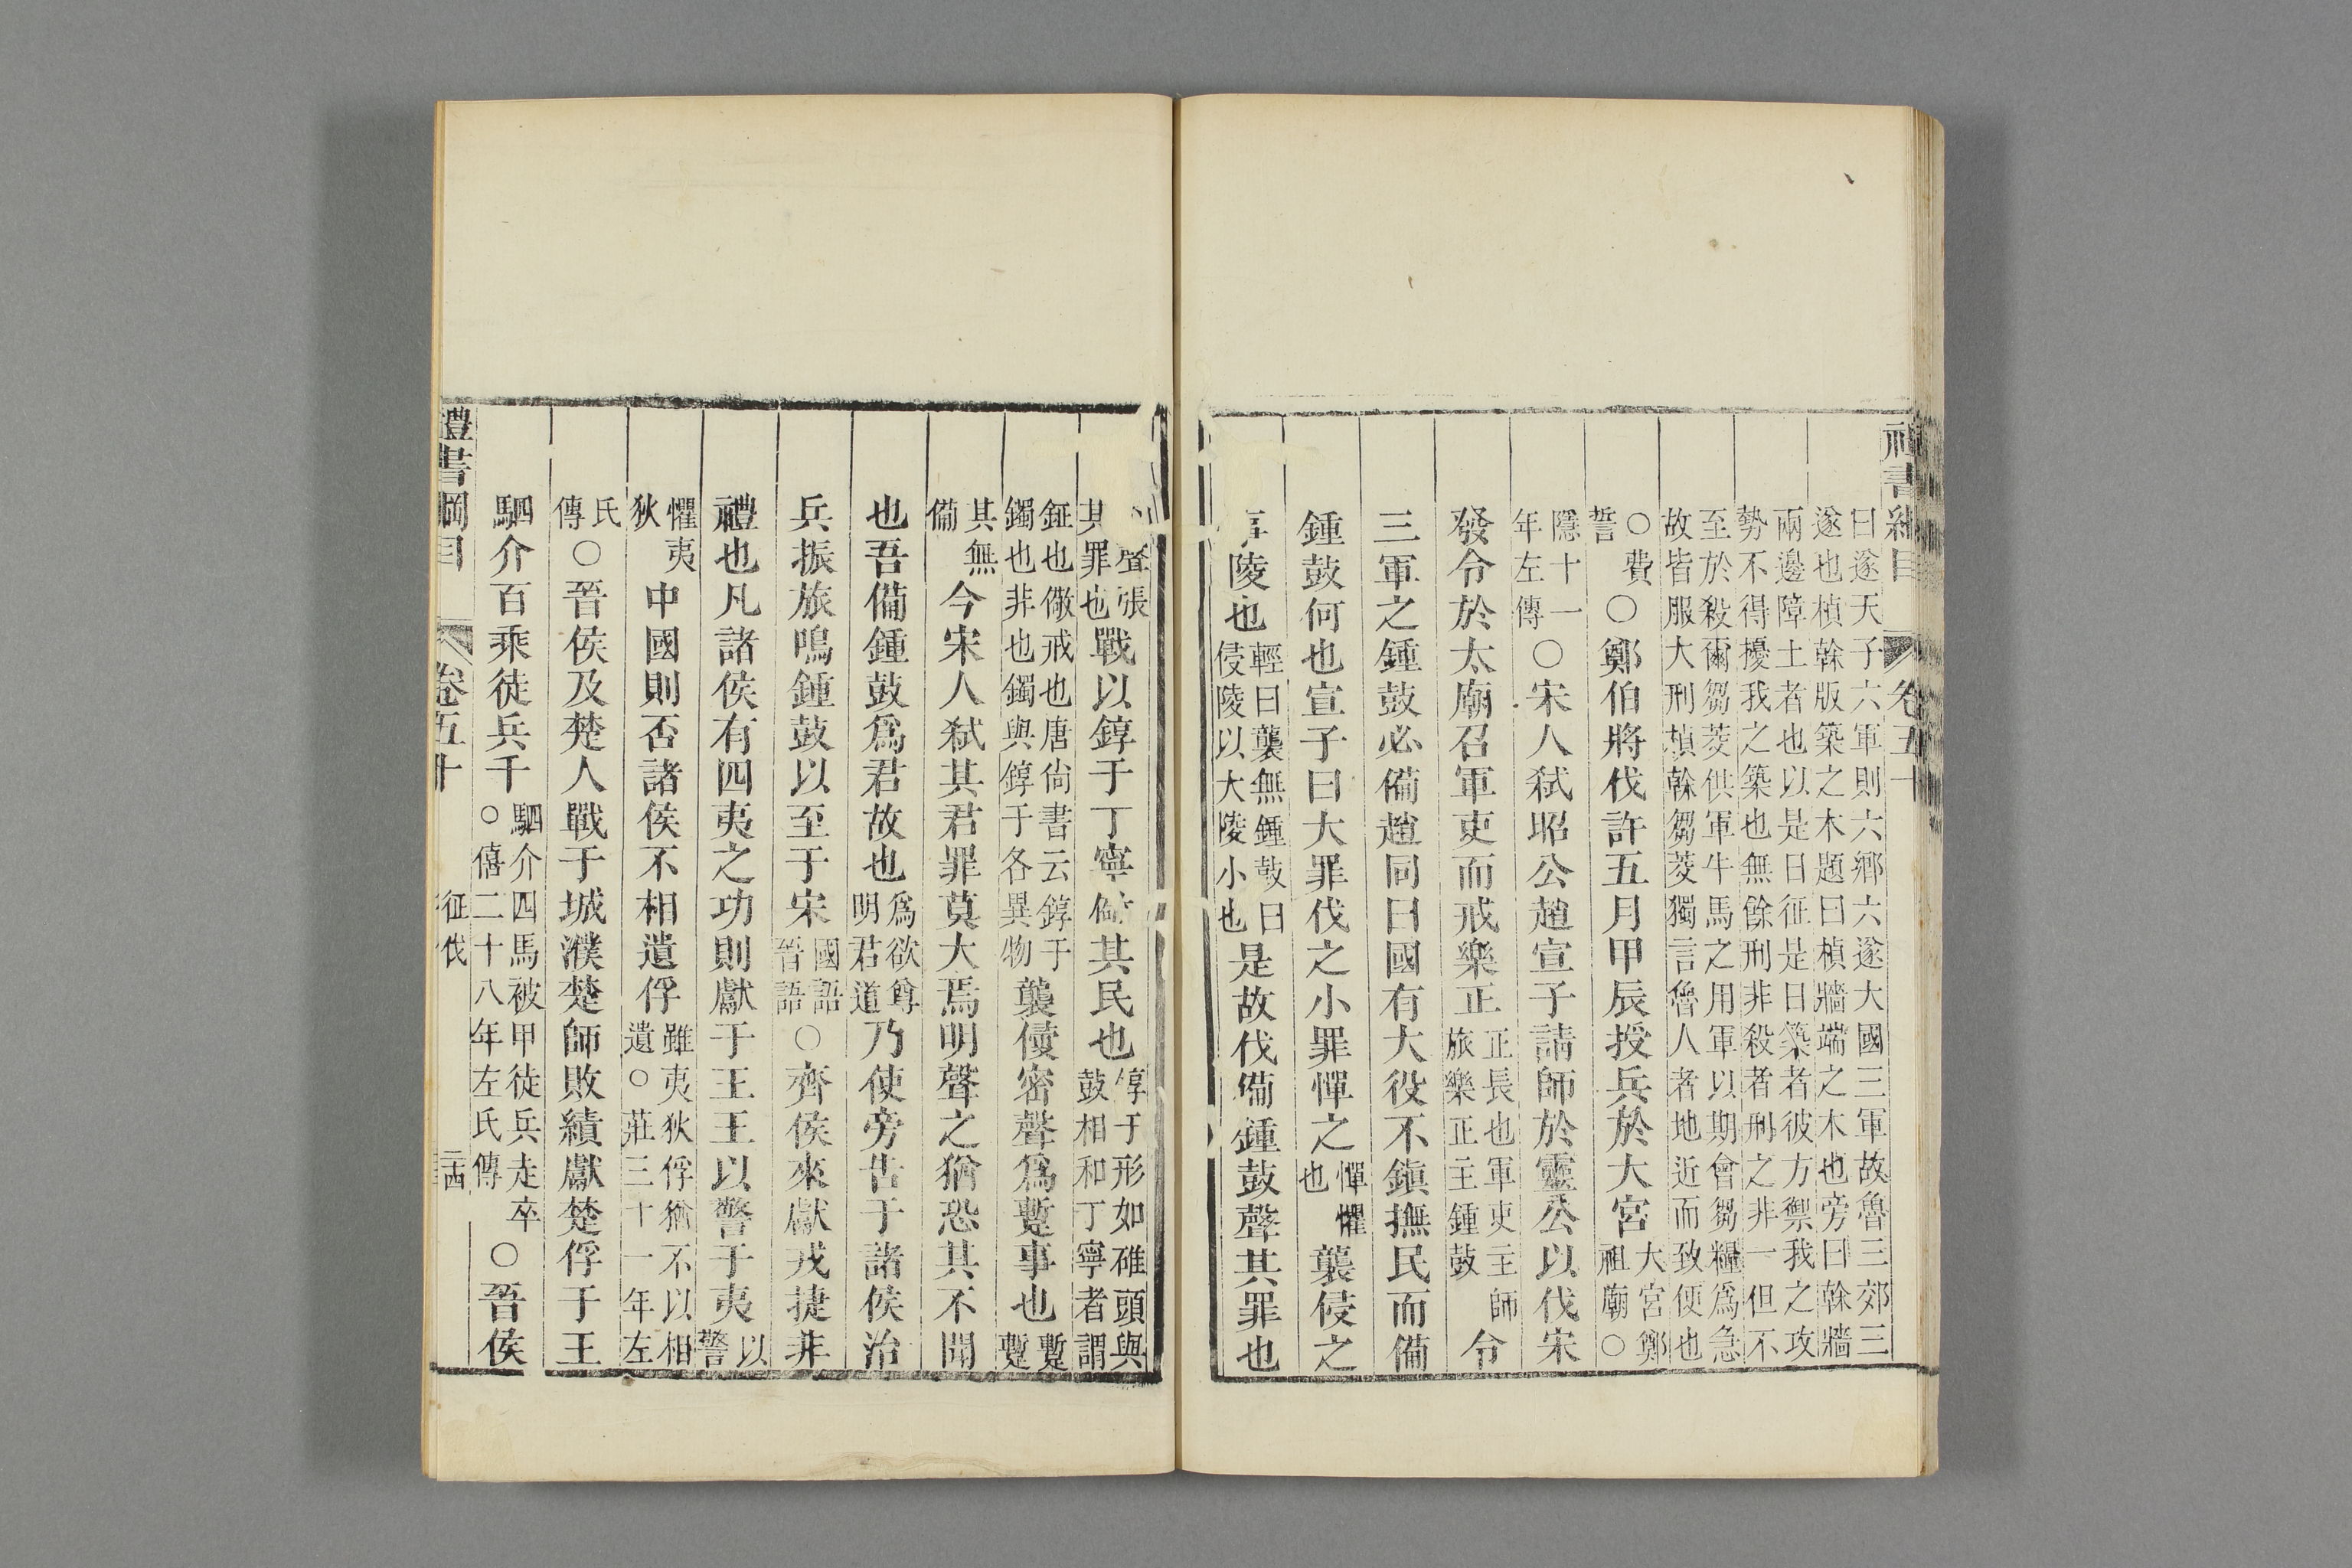 禮書綱目 卷五十
曰遂天子六軍則六鄉六遂大國三軍故魯三郊三
遂也楨榦版築之木題曰楨牆端之木也旁曰榦牆
兩邊障土者也以是日征是日築者彼方禦我之攻
勢不得擾我之築也無餘刑非殺者刑之非一但不
至於殺爾芻茭供軍牛馬之用軍以期會芻糧爲急
故皆服大刑楨榦芻茭獨言魯人者地近而致便也
○費誓○鄭伯將伐許五月甲辰授兵於大宮大宮鄭祖廟○
隱十一年左傳○宋人弑昭公趙宣子請師於靈公以伐宋
發令於太廟召軍吏而戒樂正正長也軍吏主師旅樂正主鍾鼓令
三軍之鍾鼓必備趙同曰國有大役不鎮撫民而備
鍾鼓何也宣子曰大罪伐之小罪憚之憚懼也襲侵之
陵也輕曰襲無鍾鼓曰侵陵以大陵小也是故伐備鍾鼓聲其罪也
聲張其罪也戰以錞于丁寧儆其民也錞于形如碓頭與鼓相和丁寧者謂
鉦也儆戒也唐尚書云錞于鐲也非也鐲與錞于各異物襲侵密聲爲蹔事也蹔蹔
其無備今宋人弑其君罪莫大焉明聲之猶恐其不聞
也吾備鍾鼓爲君故也爲欲尊明君道乃使旁告于諸侯治
兵振旅鳴鍾鼓以至于宋國語晉語○齊侯來獻戎捷非
禮也凡諸侯有四夷之功則獻于王王以警于夷以警
懼夷狄中國則否諸侯不相遺俘雖夷狄俘猶不以相遺○莊三十一年左
氏傳○晉侯及楚人戰于城濮楚師敗績獻楚俘于王
駟介百乘徒兵千駟介四馬被甲徒兵走卒○僖二十八年左氏傳○晉侯
禮書綱目 卷五十 征伐